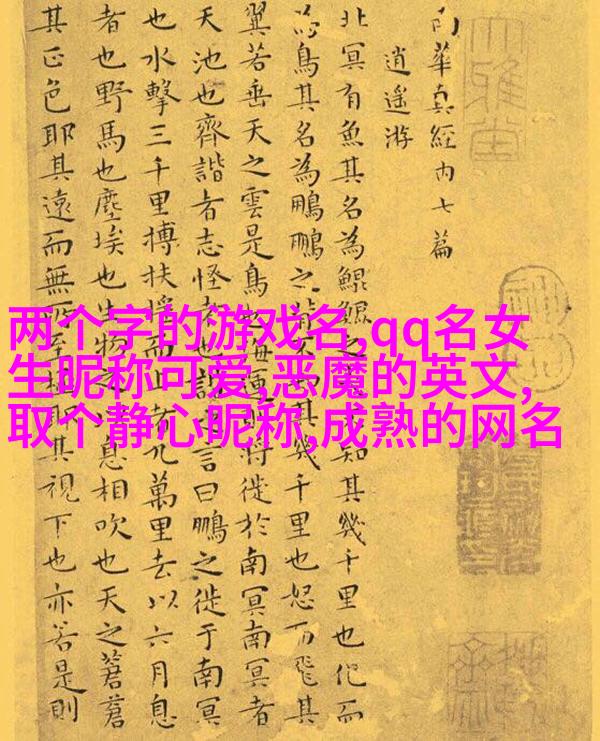 南華真經内七篇
逍遥游
北冥有魚其名為鯤鯤之知其幾千里也化而
為鳥其名為鵬鵬之背不知其幾千里也怒而飛其
翼若垂天之雲是鳥也海運則將徙於南冥南冥者
天池也齊諧者志怪者也諧之言曰鵬之徙于南冥
也水擊三千里搏扶搖而上者九萬里去以六月息
者也野馬也塵埃也生物之息相吹也天之蒼蒼
其正色耶其遠而無所至極耶其視下也亦若是則
两个字的游戏名,qq名女
生昵称可爱,恶魔的英文,
取个静心昵称,成熟的网名